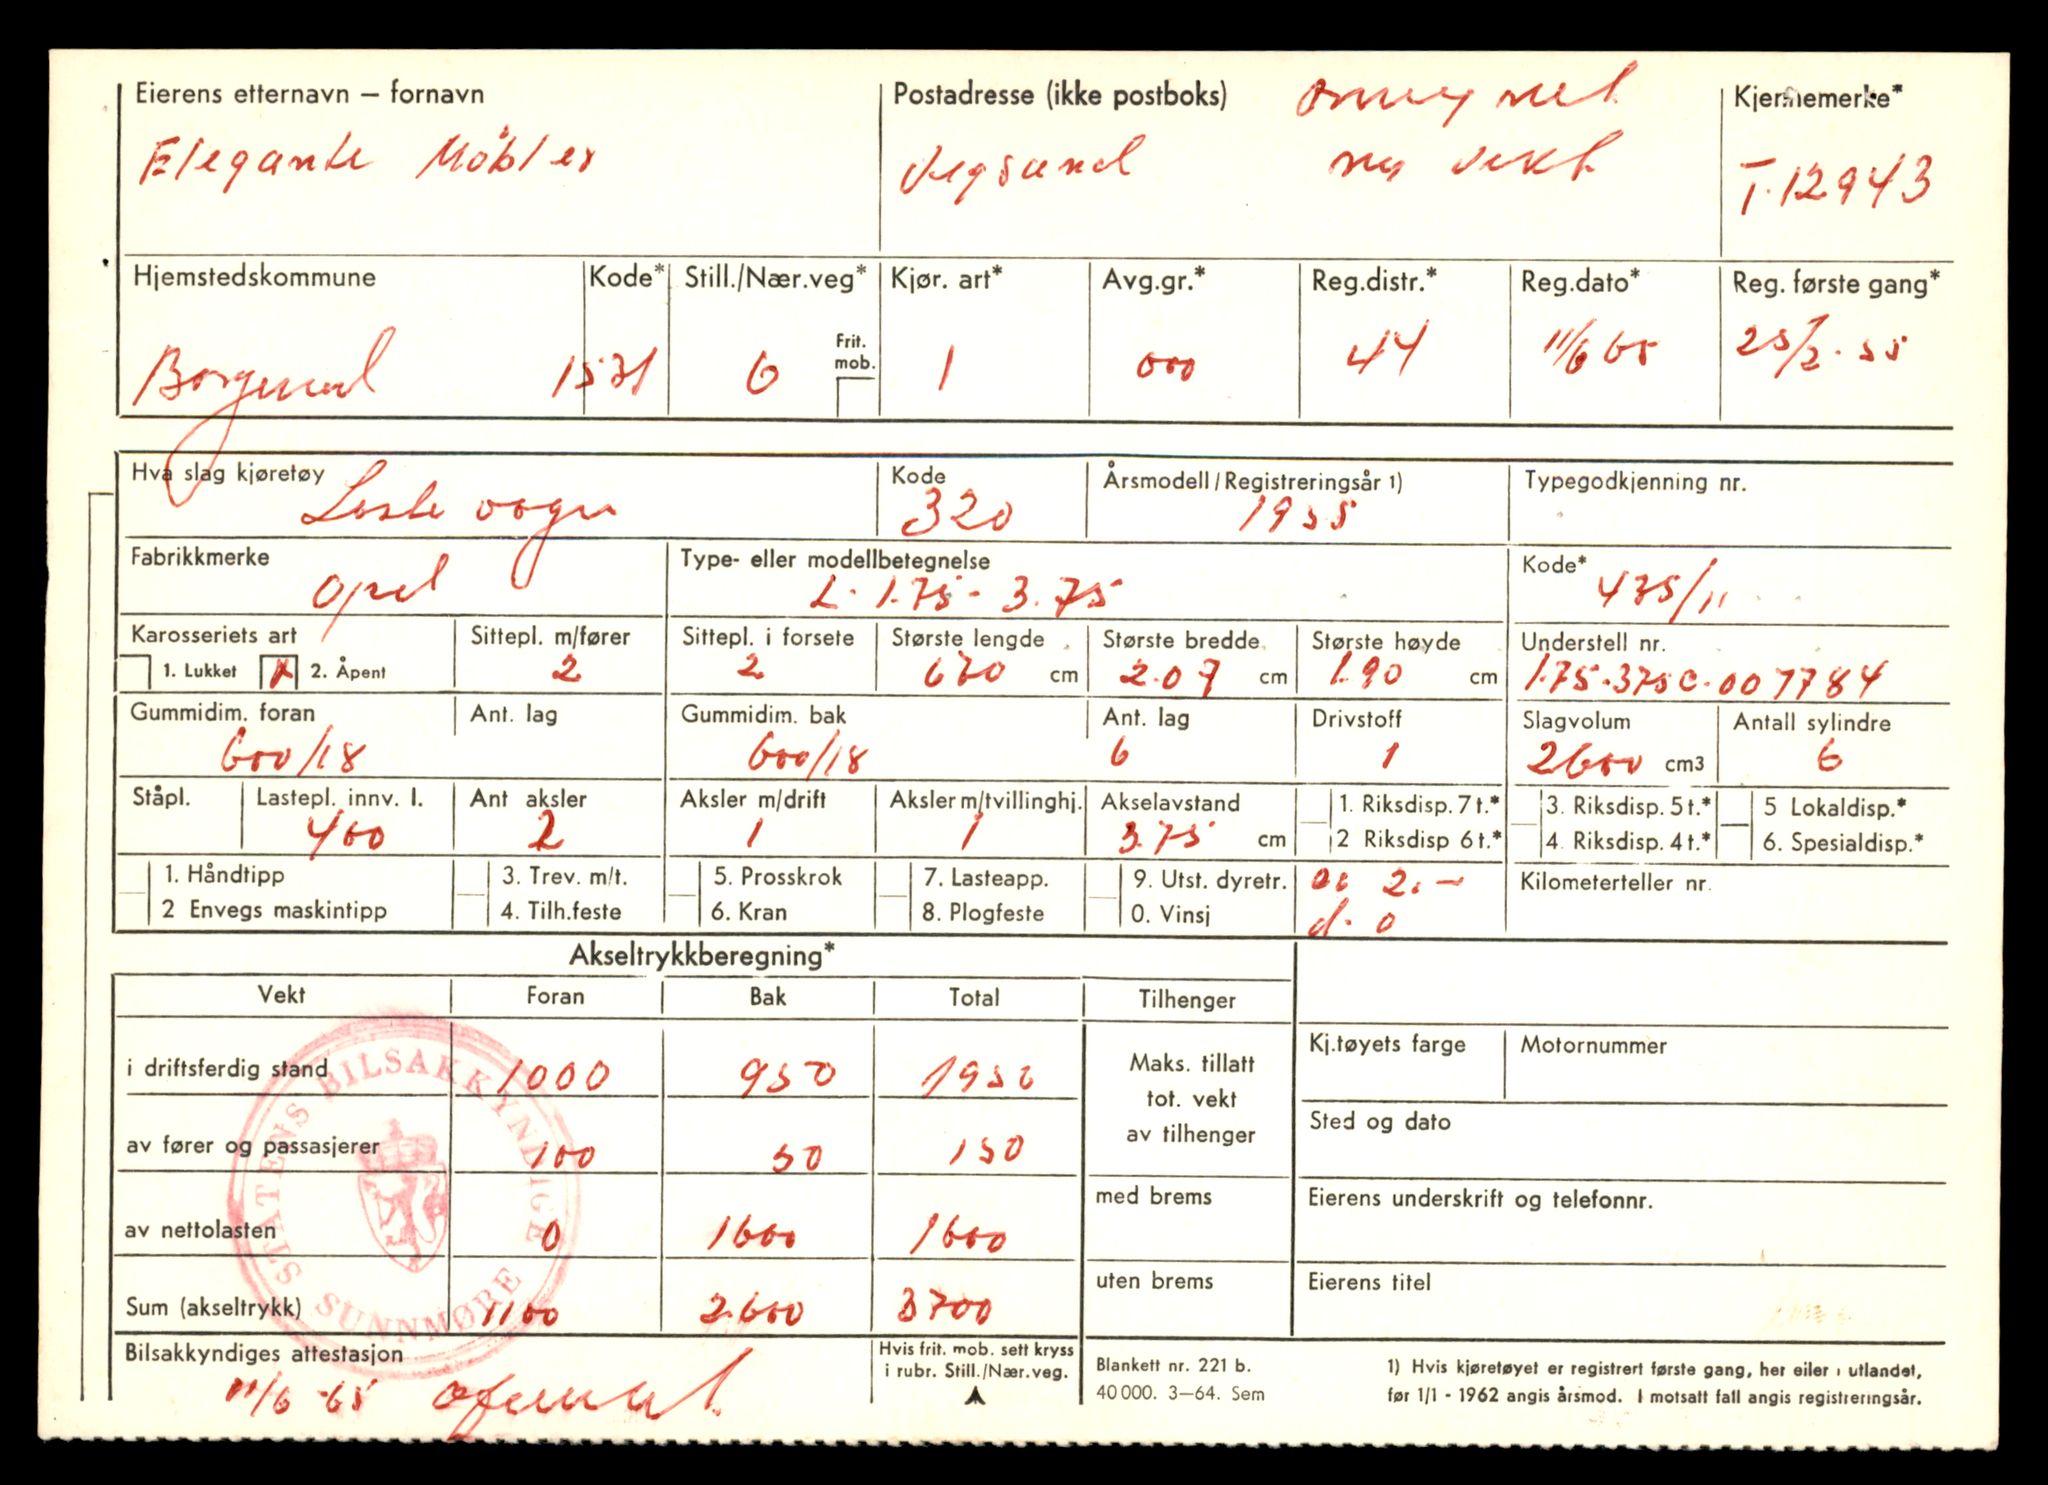 Eierens etternavn – fornavn
Elegante Møbler
Postadresse (ikke postboks)
Vegsund
ny vekt
Kjennemerke*
T-12943
Hjemstedskommune
Borgund
Kode*
1531
Still./Nær.veg*
6
Frit. mob.
Kjør. art*
1
Avg.gr.*
000
Reg.distr.*
44
Reg.dato*
11/6 65
Reg. første gang*
25/2-55
Hva slag kjøretøy
Laste vogn
Kode
320
Årsmodell/Registreringsår 1)
1955
Typegodkjenning nr.
Fabrikkmerke
Opel
Type- eller modellbetegnelse
L- 1.75 - 3.75
Kode*
435/11
Karosseriets art
1. Lukket
X 2. Åpent
Sittepl. m/fører
2
Sittepl. i forsete
2
Største lengde
670 cm
Største bredde
2.07 cm
Største høyde
1.90 cm
Understell nr.
1.75-375C-007784
Gummidim. foran
600/18
Ant. lag
Gummidim. bak
600/18
Ant. lag
6
Drivstoff
1
Slagvolum
2600 cm3
Antall sylindre
6
Ståpl.
Lastepl. innv. l.
400
Ant aksler
2
Aksler m/drift
1
Aksler m/tvillinghj.
1
Akselavstand
3.75 cm
1. Riksdisp. 7 t.*
2 Riksdisp 6 t.*
3. Riksdisp. 5 t.*
4. Riksdisp. 4 t.*
5 Lokaldisp.*
6. Spesialdisp.*
1. Håndtipp
2 Envegs maskintipp
3. Trev. m/t.
4. Tilh.feste
5. Prosskrok
6. Kran
7. Lasteapp.
8. Plogfeste
9. Utst. dyretr.
0. Vinsj
2.-
d. 0
Kilometerteller nr.
Akseltrykkberegning*
Vekt Foran Bak Total Tilhenger
i driftsferdig stand 1000 950 1950
av fører og passasjerer 100 50 150
av nettolasten 0 1600 1600
Sum (akseltrykk) 1100 2600 3700
Maks. tillatt
tot. vekt
av tilhenger
med brems
uten brems
Kj.tøyets farge
Motornummer
Sted og dato
Eierens underskrift og telefonnr.
Eierens titel
STATENS BILSAKKYNDIGE
SUNNMØRE
Bilsakkyndiges attestasjon
11/6-65
Hvis frit. mob. sett kryss
i rubr. Still./Nær.veg.
Blankett nr. 221 b.
40 000. 3–64. Sem
1) Hvis kjøretøyet er registrert første gang, her eiler i utlandet,
før 1/1 - 1962 angis årsmod. I motsatt fall angis registreringsår.